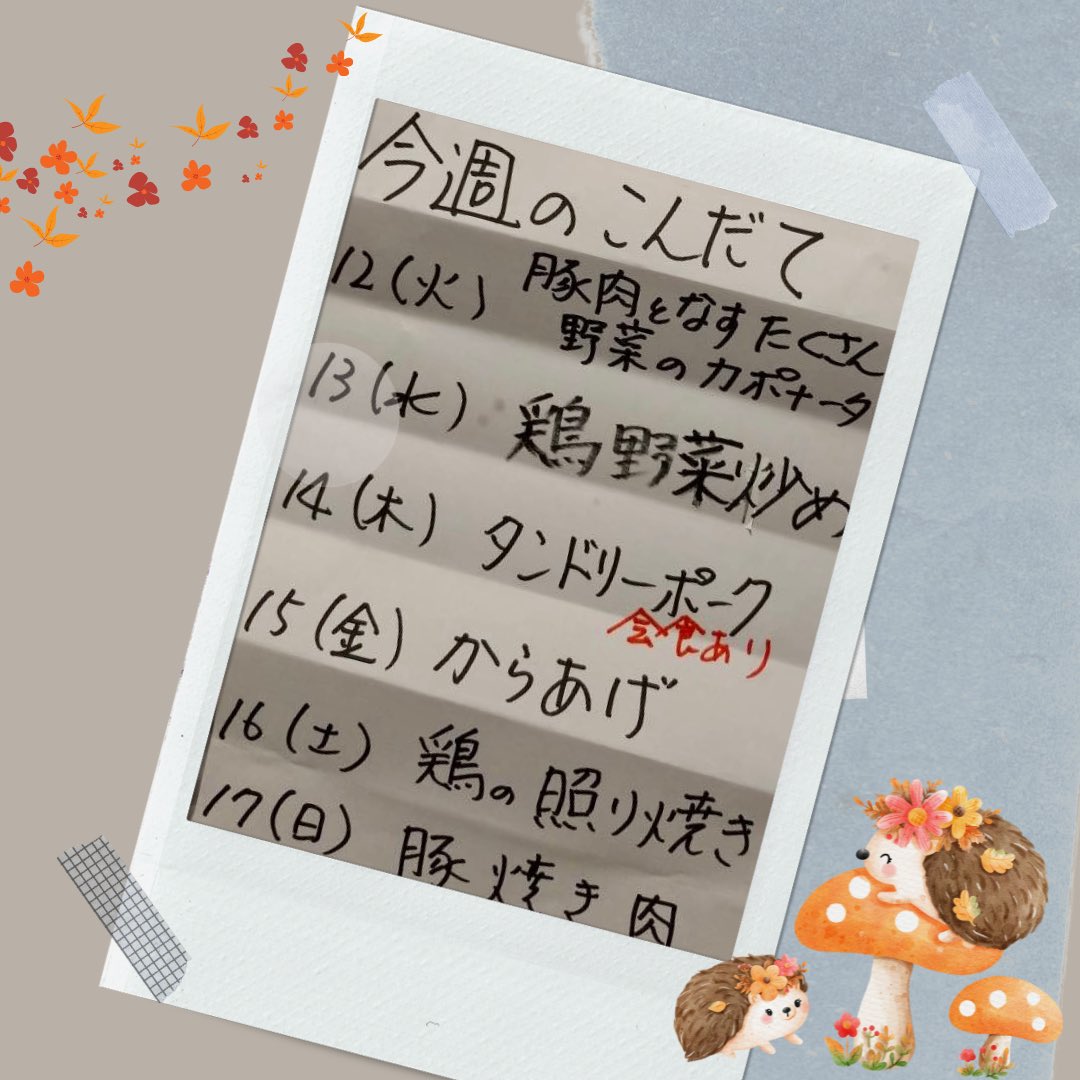 今週のこんだて
12(火) 豚肉となすたくさん
野菜のカポナータ
13(水) 鶏野菜炒め
14(木) タンドリーポーク
会食あり
15(金) からあげ
16(土) 鶏の照り焼き
17(日) 豚焼き肉